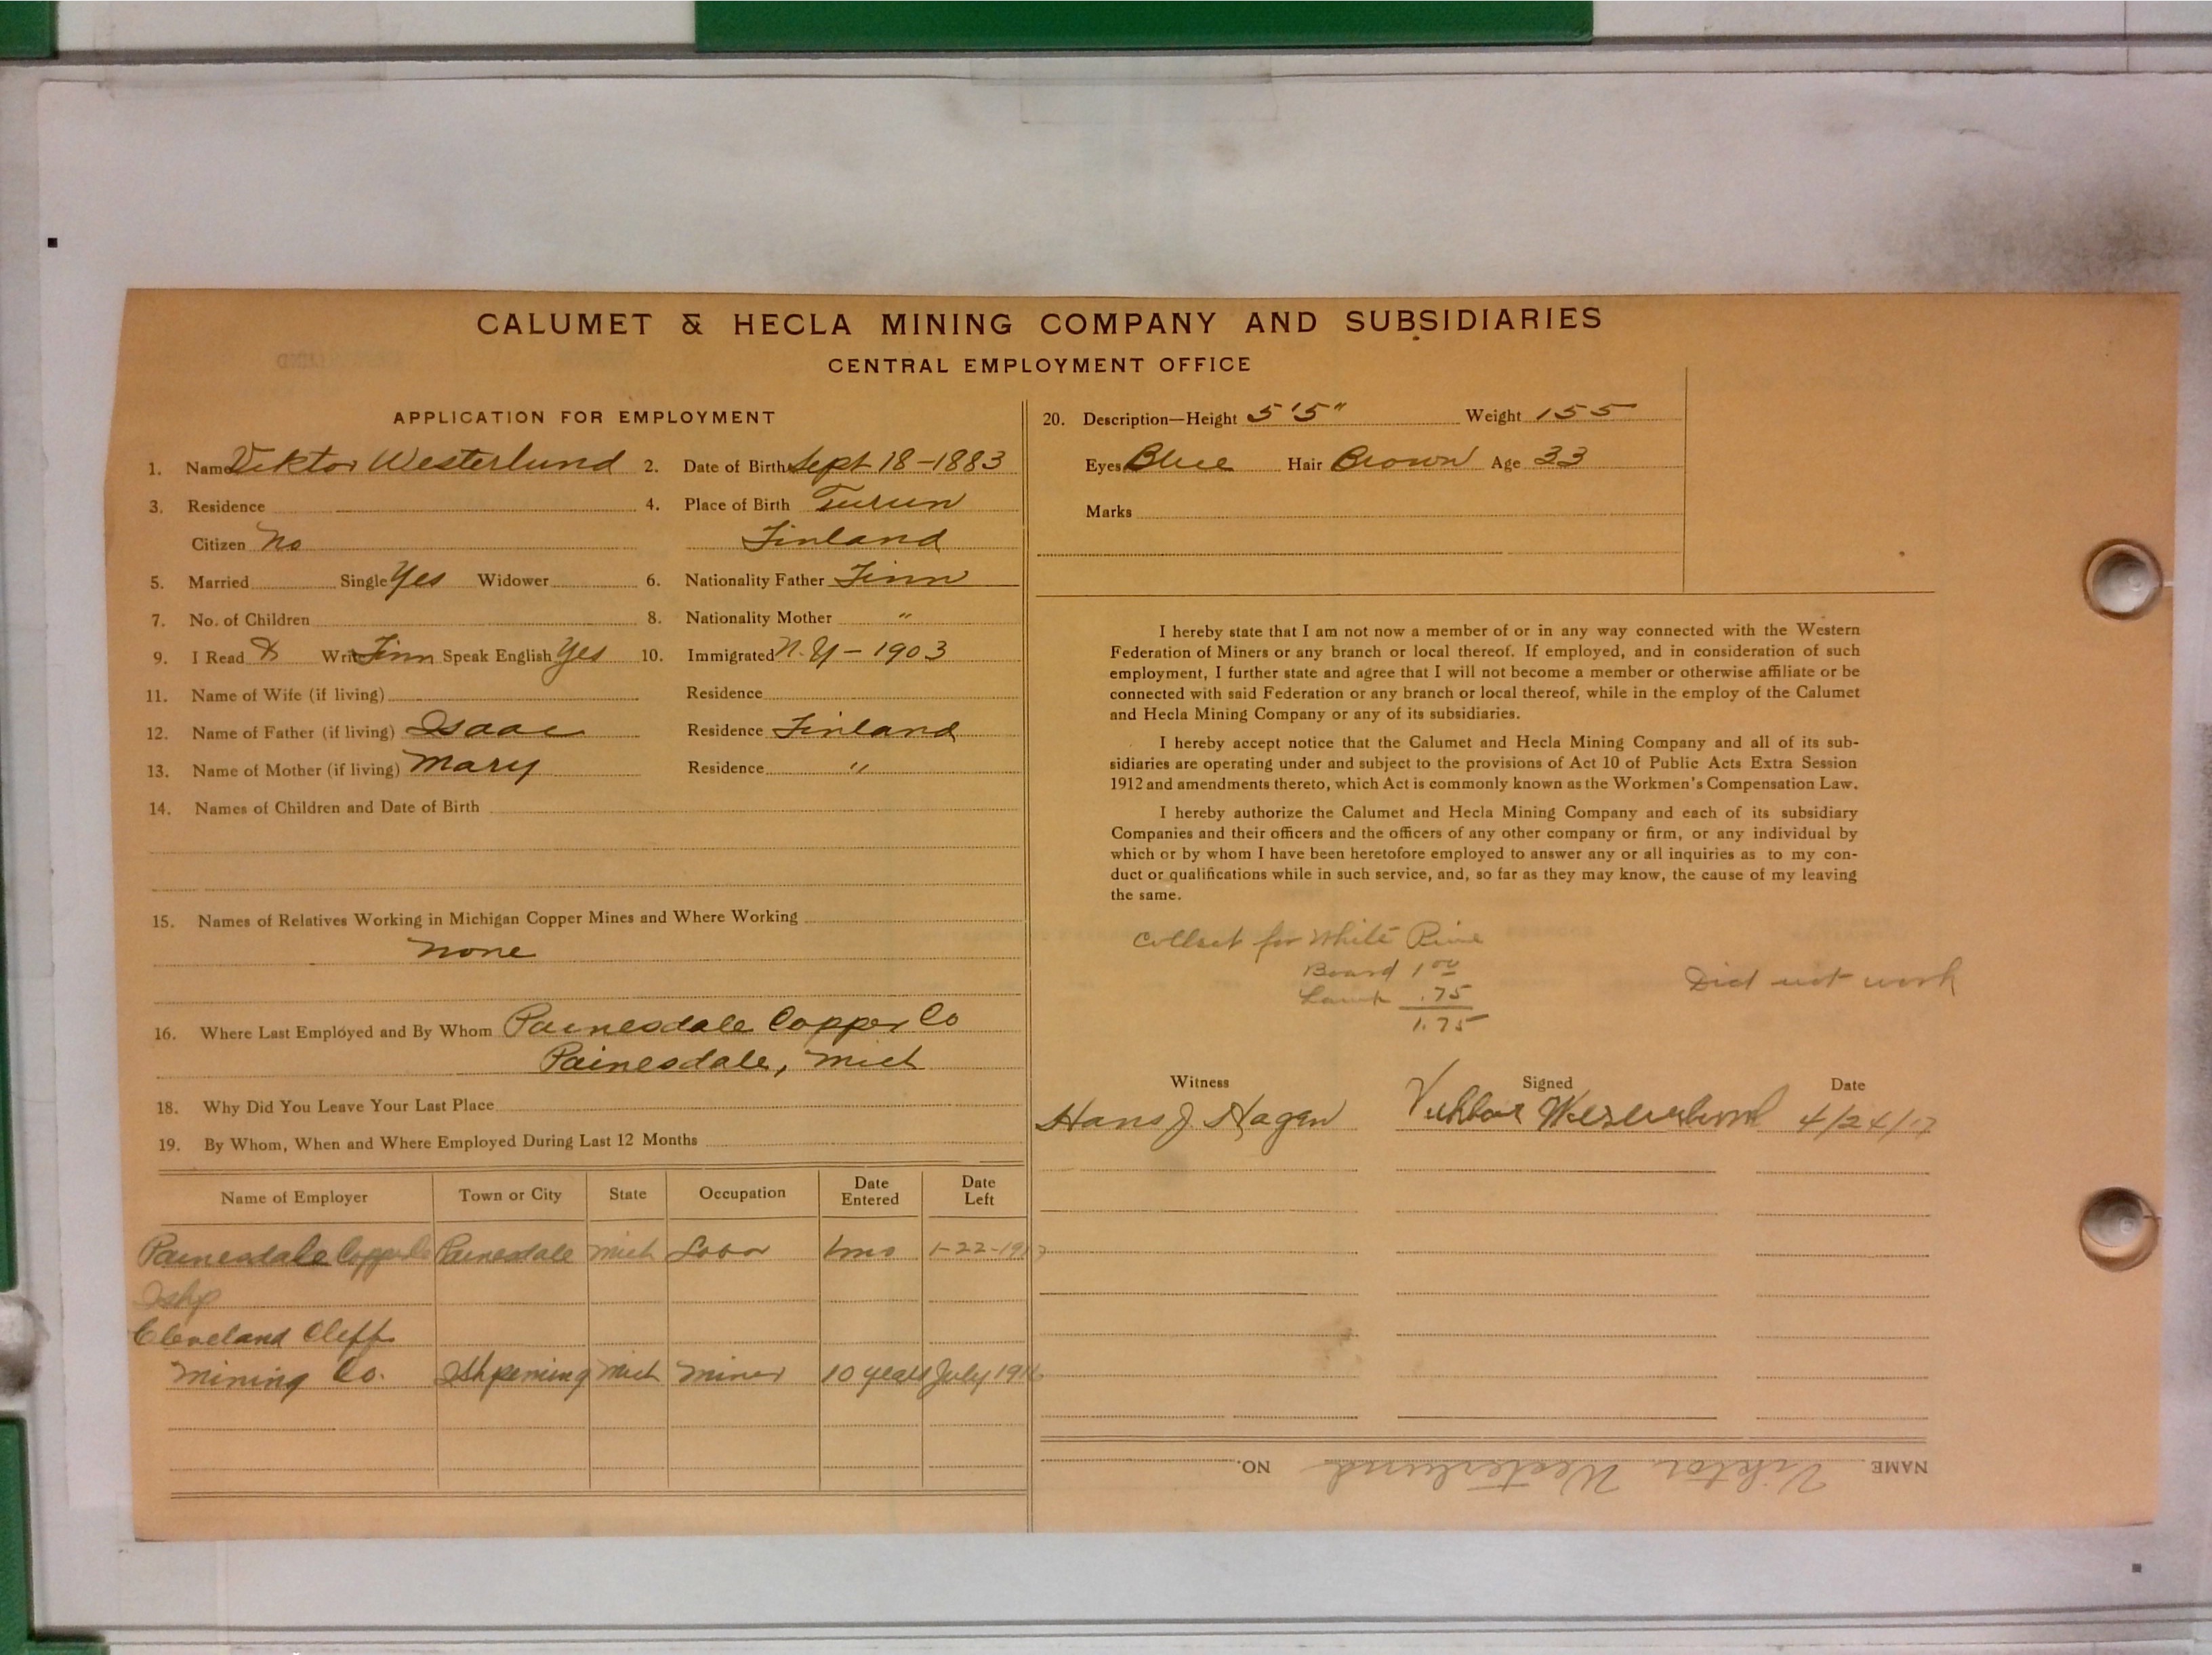 CALUMET & HECLA MINING COMPANY AND SUBSIDIARIES
CENTRAL EMPLOYMENT OFFICE
APPLICATION FOR EMPLOYMENT
1. Name Viktor Westerlund 2. Date of Birth Sept 18-1883
3. Residence 4. Place of Birth Turun
Citizen No Finland
5. Married Single Yes Widower 6. Nationality Father Finn
7. No. of Children 8. Nationality Mother "
9. I Read & Write Finn Speak English Yes 10. Immigrated N.Y - 1903
11. Name of Wife (if living) Residence
12. Name of Father (if living) Isaac Residence Finland
13. Name of Mother (if living) Mary Residence "
14. Names of Children and Date of Birth
15. Names of Relatives Working in Michigan Copper Mines and Where Working
None
16. Where Last Employed and By Whom Painesdale Copper Co
Painesdale, Mich
18. Why Did You Leave Your Last Place
19. By Whom, When and Where Employed During Last 12 Months
Name of Employer Town or City State Occupation Date Entered Date Left
Painesdale Copper Co Painesdale Mich Labor 1-22-1917
Ishp
Cleveland Cliff
Mining Co. Ishpeming Mich Miner 10 years July 1916
20. Description—Height 5'5" Weight 155
Eyes Blue Hair Brown Age 33
Marks
I hereby state that I am not now a member of or in any way connected with the Western
Federation of Miners or any branch or local thereof. If employed, and in consideration of such
employment, I further state and agree that I will not become a member or otherwise affiliate or be
connected with said Federation or any branch or local thereof, while in the employ of the Calumet
and Hecla Mining Company or any of its subsidiaries.
I hereby accept notice that the Calumet and Hecla Mining Company and all of its sub-
sidiaries are operating under and subject to the provisions of Act 10 of Public Acts Extra Session
1912 and amendments thereto, which Act is commonly known as the Workmen's Compensation Law.
I hereby authorize the Calumet and Hecla Mining Company and each of its subsidiary
Companies and their officers and the officers of any other company or firm, or any individual by
which or by whom I have been heretofore employed to answer any or all inquiries as to my con-
duct or qualifications while in such service, and, so far as they may know, the cause of my leaving
the same.
Collect for White Pine
Board 1 00
Lamp .75
1.75
Did not work
Witness Signed Date
Hans J. Hagen Viktor Westerlund 4/24/17
NAME Viktor Westerlund NO.